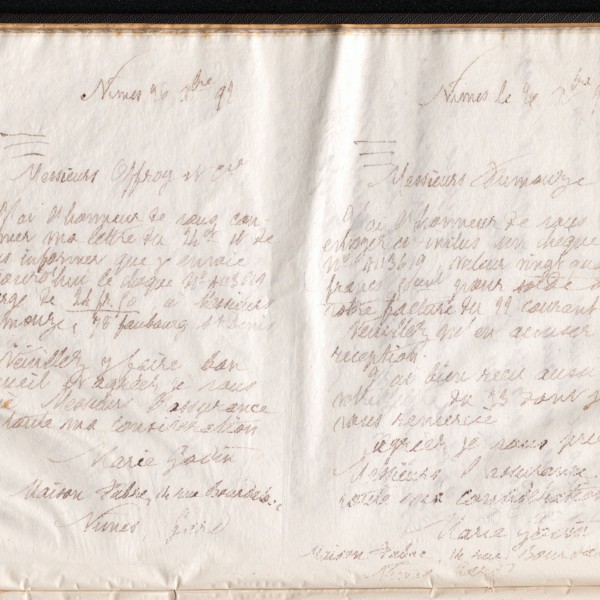 Nimes 26 Xbre 99
Messieurs Offroy et Cie
J'ai l'honneur de vous con-
mer ma lettre du 24 et de
us informer que j'envoie
jourd'hui le chèque N° 413619
rge de 24 fr 50 à Messieurs
mouze, 78 faubourg St Denis
Veuillez y faire bon
ueil et agréer je vous
Messieurs l'assurance
toute ma considération
Marie Godin
Maison Fabre, 14 rue Bourdaloue
Nimes Gard
Nimes le 26 Xbre 9
Messieurs Dumouze
J'ai l'honneur de vous
envoyer ci-inclus un chèque
N° 413619 valeur vingt qua
francs pour solde
votre facture du 22 courant
Veuillez m'en accuser
réception.
J'ai bien reçu aussi
votre du 23 dont je
vous remercie
Agréez je vous prie
Messieurs l'assurance
toute ma considération
Marie Godin
Maison Fabre, 14 rue Bourda
Nimes Gard